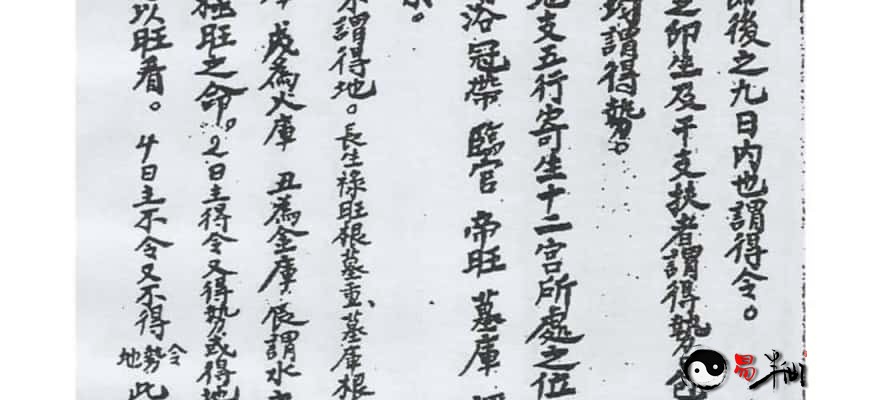 節後之九日內也謂得令。
之卯生及干支扶者謂得勢
均謂得勢。
地支五行寄生十二宮所處之位
浴 冠帶 臨官 帝旺 墓庫
謂得地。長生祿旺根墓重、墓庫根
成為火庫 丑為金庫 辰謂水
極旺之命。2日主得令又得勢或得地
以旺看。4日主不令又不得令勢地此
易